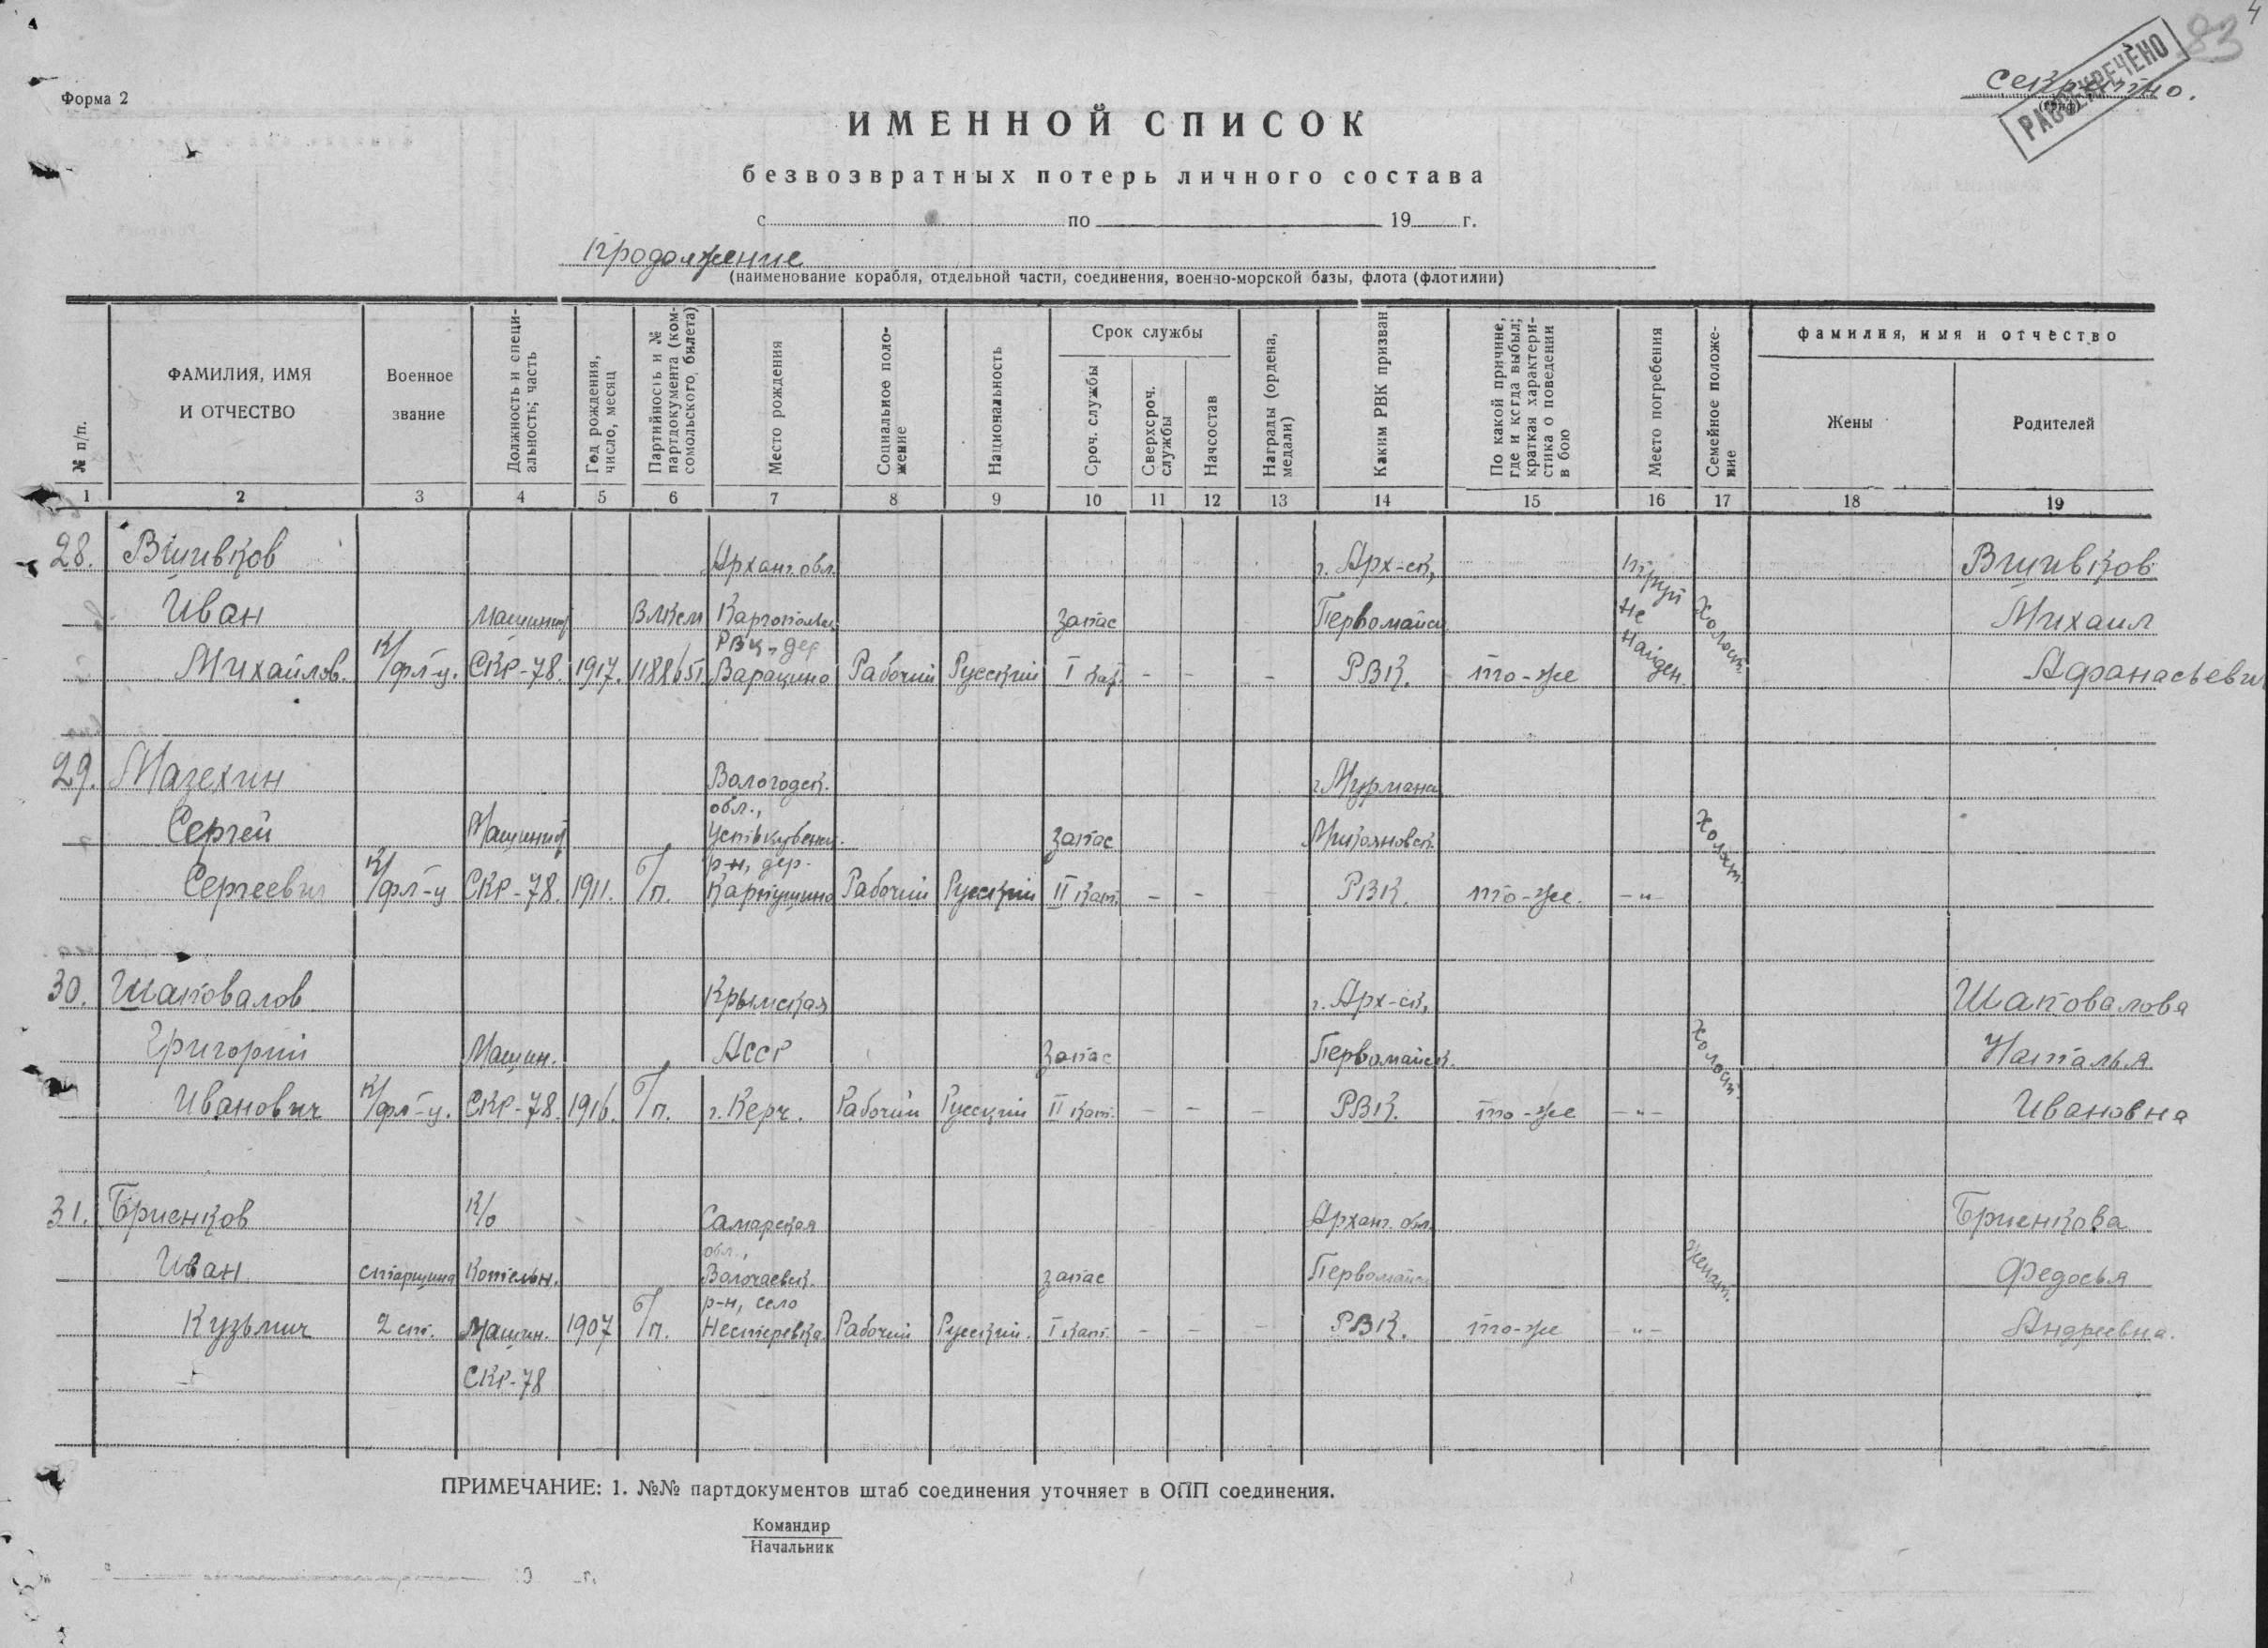 4
83
Секретно.
РАССЕКРЕЧЕНО
Форма 2
ИМЕННОЙ СПИСОК
безвозвратных потерь личного состава
с по 19 г.
продолжение
(наименование корабля, отдельной части, соединения, военно-морской базы, флота (флотилии)
№ п/п.
ФАМИЛИЯ, ИМЯ
И ОТЧЕСТВО
Военное
звание
Должность и специ-
альность; часть
Год рождения,
число, месяц
Партийность и №
партдокумента (ком-
сомольского билета)
Место рождения
Социальное поло-
жение
Национальность
Срок службы
Сроч. службы
Сверхсроч.
службы
Начсостав
Награды (ордена,
медали)
Каким РВК призван
По какой причине,
где и когда выбыл;
краткая характери-
стика о поведении
в бою
Место погребения
Семейное положе-
ние
фамилия, имя и отчество
Жены
Родителей
1 2 3 4 5 6 7 8 9 10 11 12 13 14 15 16 17 18 19
28. Вшивков Арханг. обл. г. Арх-ск, Вшивков
Иван машинист ВЛКСМ Каргопольск. запас Первомайск. Михаил
РВК, дер
Михайлов. К/фл-ц. СКР-78. 1917. Варацино Рабочий Русский I кат. - - - РВК. то-же Афанасьевич
труп
не
найден
Холост.
29. Мазехин Вологодск. г. Мурманск
обл.,
Сергей Машинист Усть-кубенск. запас Микояновск.
р-н, дер.
Сергеевич К/фл-ц СКР-78. 1911. Б/п. Карпушино Рабочий Русский II кат. - - - РВК. то-же. -"-
Холост.
30. Шаповалов Крымская г. Арх-ск, Шаповалова
Григорий Машин. АССР Запас Первомайск. Наталья
Иванович К/фл-ц. СКР-78. 1916. Б/п. г. Керч. Рабочий Русский II кат. - - - РВК. то-же -"- Ивановна
Холост.
31. Бриенков К/о Самарская Арханг. обл. Бриенкова
обл.,
Иван старшина Котельн. запас Первомайск Федосья
р-н, село
Кузьмич 2 ст. Машин. 1907 Б/п. Нестеревка Рабочий Русский. I кат. - - - РВК. то-же -"- Андреевна.
женат.
СКР-78
ПРИМЕЧАНИЕ: 1. №№ партдокументов штаб соединения уточняет в ОПП соединения.
Командир
Начальник